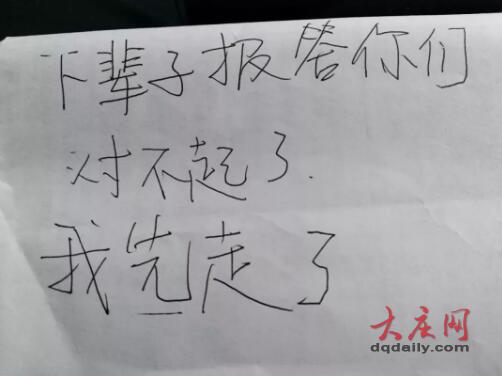 下辈子报答你们
对不起了.
我先走了
大庆网
dqdaily.com